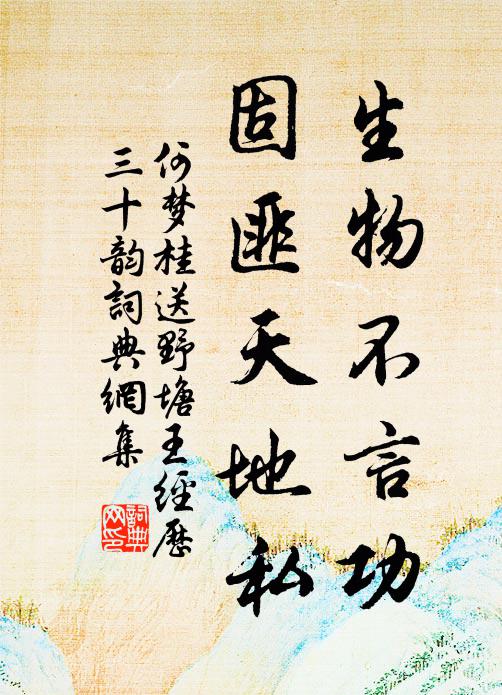 生物不言功
固匪天地私
何梦桂送野塘王經歷
三十韵詞典網集